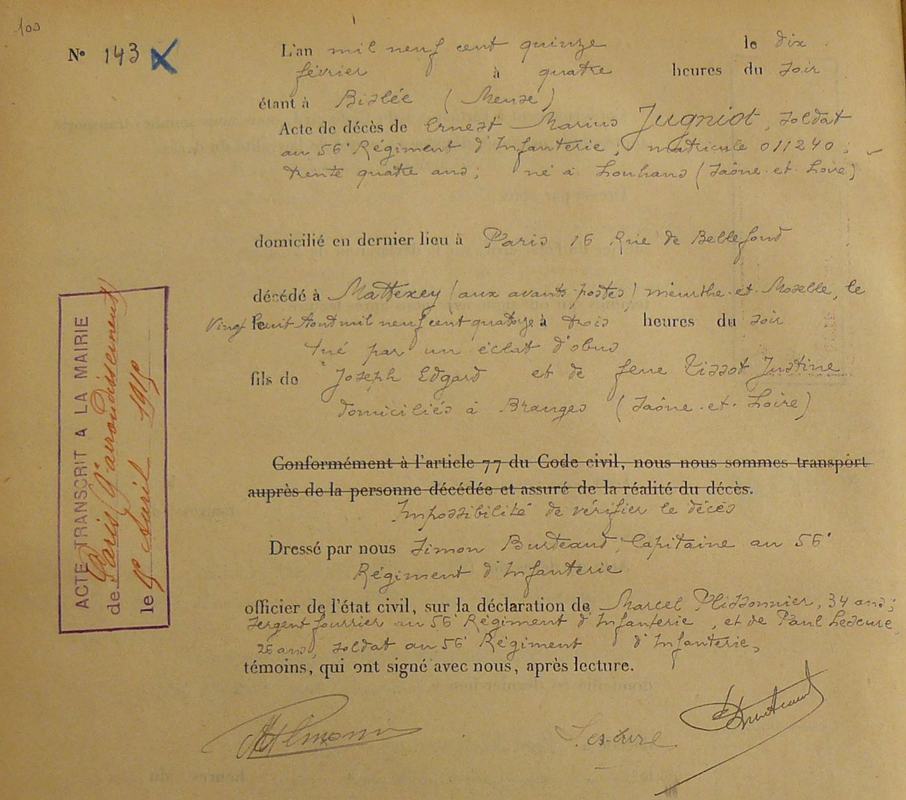 100
N° 143 X
L'an mil neuf cent quinze le dix
février à quatre heures du soir
étant à Bislée (Meuse)
Acte de décès de Ernest Marius Jugniot, soldat
au 56e Régiment d'Infanterie, matricule 011240;
trente quatre ans; né à Louhans (Saône-et-Loire)
domicilié en dernier lieu à Paris 16 Rue de Bellefond
décédé à Mattexey (aux avants-postes) Meurthe-et-Moselle, le
Vingt huit Août mil neuf cent quatorze à trois heures du soir
tué par un éclat d'obus
fils de Joseph Edgard et de feue Tissot Justine
domiciliés à Branges (Saône-et-Loire)
Conformément à l'article 77 du Code civil, nous nous sommes transport
auprès de la personne décédée et assuré de la réalité du décès.
Impossibilité de vérifier le décès
Dressé par nous Simon Burdeaud, Capitaine au 56e
Régiment d'Infanterie
officier de l'état civil, sur la déclaration de Marcel Plissonnier, 34 ans;
Sergent fourrier au 56e Régiment d'Infanterie, et de Paul Lescure,
26 ans, soldat au 56e Régiment d'Infanterie,
témoins, qui ont signé avec nous, après lecture.
Lescure
ACTE TRANSCRIT A LA MAIRIE
de Paris (9e arrondissement)
le 1er Avril 1915